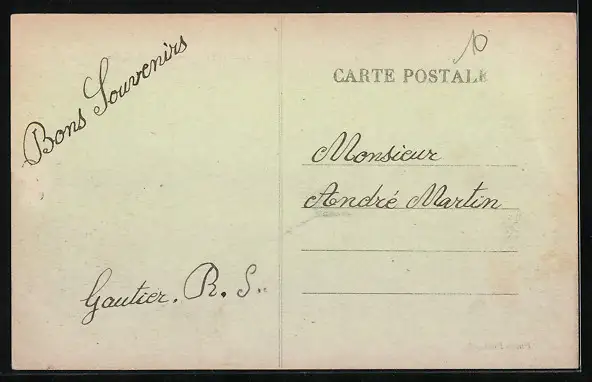 Bons Souvenirs
Gautier. R. S..
10
CARTE POSTALE
Monsieur
André Martin